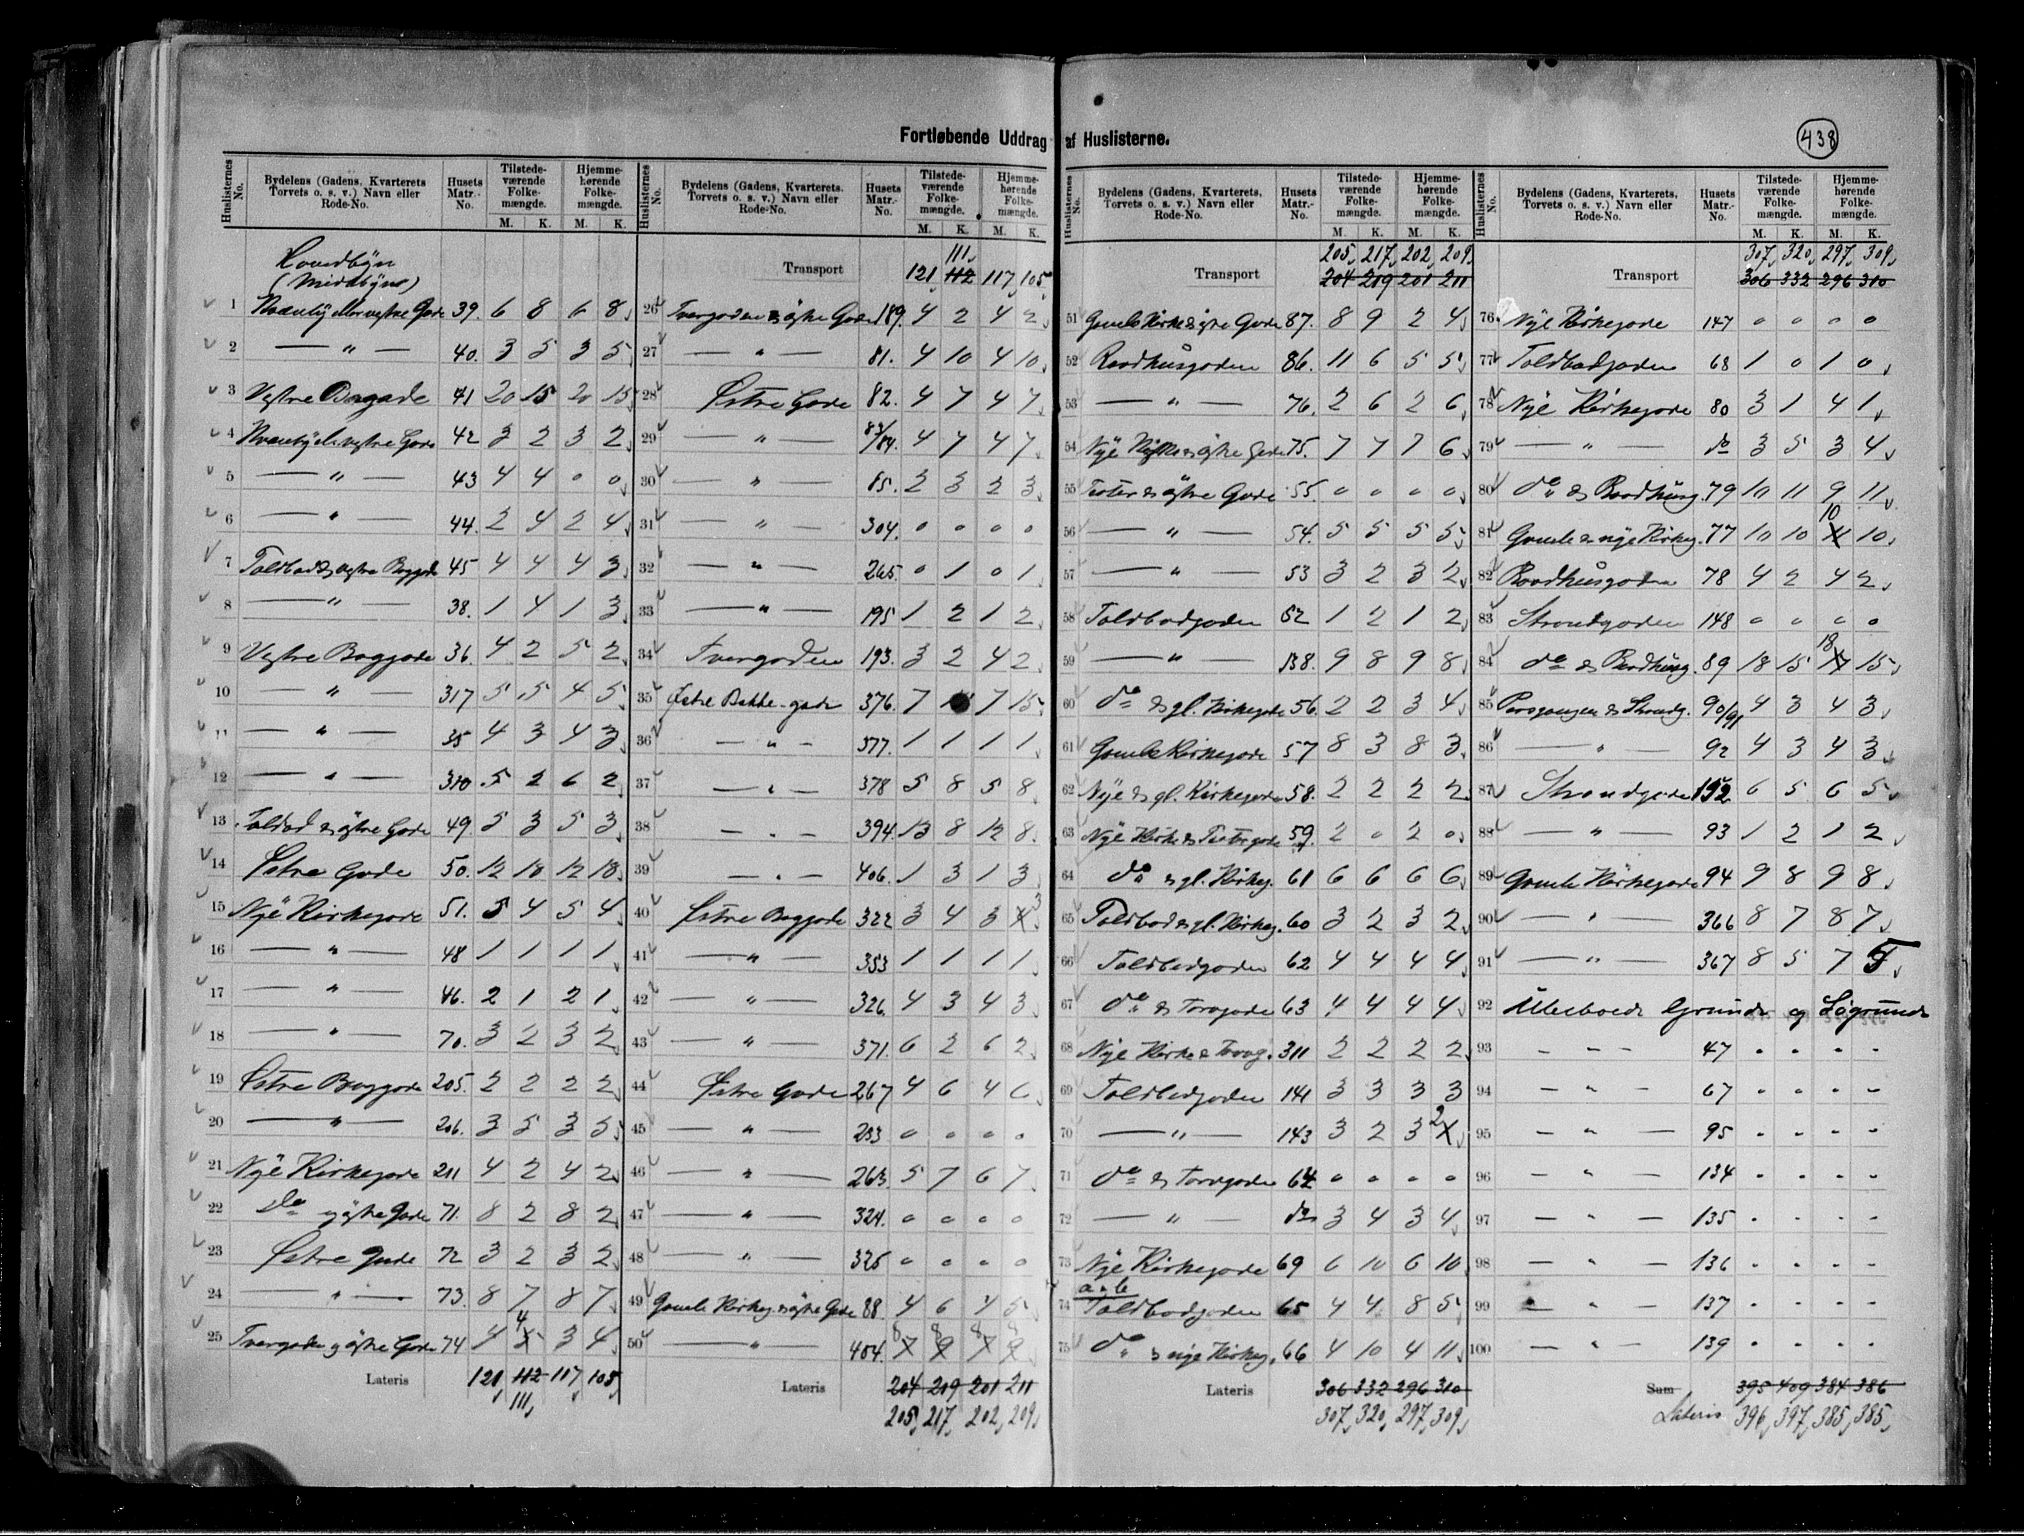 Fortløbende Uddrag af Huslisterne.
438
Huslisternes No. Bydelens (Gadens, Kvarterets, Torvets o. s. v.) Navn eller Rode-No. Husets Matr.-No. Tilstedeværende Folkemængde. M. K. Hjemmehørende Folkemængde. M. K.
Hovedbyen
(Midtbyen)
1 39. 6 8 6 8
2 — " — 40. 3 5 3 5
3 Vestre Baggade 41 20 15 20 15
4 42 3 2 3 2
5 — " — 43 4 4 0 0
6 — " — 44. 2 4 2 4
7 Toldbod & vestre Baggade 45 4 4 4 3
8 — " — 38. 1 4 1 3
9 Vestre Baggade 36. 4 2 5 2
10 — " — 317 5 5 4 5
11 — " — 35 4 3 4 3
12 — " — 310. 5 2 6 2
13 Toldbod & østre Gade 49. 5 3 5 3
14 Østre Gade 50. 12 10 12 10
15 Nye Kirkegade 51. 5 4 5 4
16 — " — 48 1 1 1 1
17 — " — 46. 2 1 2 1
18 — " — 70. 3 2 3 2
19 Østre Baggade 205. 2 2 2 2
20 — " — 206. 3 5 3 5
21 Nye Kirkegade 211 4 2 4 2
22 Do østre Gade 71. 8 2 8 2
23 Østre Gade 72 3 2 3 2
24 — " — 73. 8 7 8 7
25 Tvergaden & østre Gade 74 4 4 3 4
Lateris 121 112 117 105
111
Huslisternes No. Bydelens (Gadens, Kvarterets, Torvets o. s. v.) Navn eller Rode-No. Husets Matr.-No. Tilstedeværende Folkemængde. M. K. Hjemmehørende Folkemængde. M. K.
111
Transport 121 112 117 105
26 Tvergaden & østre Gade 189. 4 2 4 2
27 — " — 81. 4 10 4 10
28 Østre Gade 82. 4 7 4 7
29 — " — 83/84. 4 7 4 7
30 — " — 85. 2 3 2 3
31 — " — 304. 0 0 0 0
32 — " — 265. 0 1 0 1
33 — " — 195 1 2 1 2
34 Tvergaden 193. 3 2 4 2
35 Østre Bakke-gade 376. 7 7 15
36 — " — 377. 1 1 1 1
37 — " — 378 5 8 5 8
38 — " — 394. 13 8 12 8
39 — " — 406. 1 3 1 3
40 Østre Baggade 322 3 4 3 3
41 — " — 353 1 1 1 1
42 — " — 326. 4 3 4 3
43 — " — 371. 6 2 6 2
44 Østre Gade 267 4 6 4 6
45 — " — 233 0 0 0 0
46 — " — 263. 5 7 6 7
47 — " — 324. 0 0 0 0
48 — " — 325 0 0 0 0
49 Gamle Kirkeg & østre Gade 88. 4 6 4 5
50 — " — 404. 8 8 8 8
Lateris 204 219 201 211
205 217 202 209
Huslisternes No. Bydelens (Gadens, Kvarterets, Torvets o. s. v.) Navn eller Rode-No. Husets Matr.-No. Tilstedeværende Folkemængde. M. K. Hjemmehørende Folkemængde. M. K.
205 217 202 209
Transport 204 219 201 211
51 Gamle Kirke & østre Gade 87. 8 9 2 4
52 Raadhusgaden 86. 11 6 5 5
53 — " — 76. 2 6 2 6
54 Nye Kirke & østre Gade 75. 7 7 7 6
55 Teater & østre Gade 55. 0 0 0 0
56 — " — 54. 5 5 5 5
57 — " — 53 3 2 3 2
58 Toldbodgaden 52 1 2 1 2
59 — " — 138. 9 8 9 8
60 do & gl. Kirkegade 56. 2 2 3 4
61 Gamle Kirkegade 57 8 3 8 3
62 Nye & gl. Kirkegade 58. 2 2 2 2
63 Nye Kirke & Teatergade 59. 2 0 2 0
64 do & gl. Kirkeg. 61 6 6 6 6
65 Toldbod & gl. Kirkeg. 60 3 2 3 2
66 Toldbodgaden 62 4 4 4 4
67 do & Torvgaden 63 4 4 4 4
68 Nye Kirke & Torvg. 311 2 2 2 2
69 Toldbodgaden 141 3 3 3 3
70 — " — 143 3 2 3 2
71 do & Torvgaden 64 0 0 0 0
72 — " — do 3 4 3 4
73 Nye Kirkegade 69 6 10 6 10
a & b
74 Toldbodgaden 65 4 4 8 5
75 do & nye Kirkeg. 66 4 10 4 11
Lateris 306 332 296 310
307 320 297 309
Huslisternes No. Bydelens (Gadens, Kvarterets, Torvets o. s. v.) Navn eller Rode-No. Husets Matr.-No. Tilstedeværende Folkemængde. M. K. Hjemmehørende Folkemængde. M. K.
307 320 297 309
Transport 306 332 296 310
76 Nye Kirkegade 147 0 0 0 0
77 Toldbodgaden 68 1 0 1 0
78 Nye Kirkegade 80 3 1 4 1
79 — " — do 3 5 3 4
80 do & Raadhusg. 79 10 11 9 11
81 Gamle & nye Kirkeg. 77 10 10 10 10
82 Raadhusgaden 78 4 2 4 2
83 Strandgaden 148 0 0 0 0
84 do & Raadhusg. 89 18 15 18 15
85 & Strandg. 90/91 4 3 4 3
86 — " — 92 4 3 4 3
87 Strandgade 192 6 5 6 5
88 — " — 93 1 2 1 2
89 Gamle Kirkegade 94 9 8 9 8
90 — " — 366 8 7 8 7
91 — " — 367 8 5 7 5
92 Ubeboede Grunde og Løgrunde
93 — " — 47
94 — " — 67
95 — " — 95
96 — " — 134
97 — " — 135
98 — " — 136
99 — " — 137
100 — " — 139
Sum 395 409 384 386
Lateris 396 397 385 385